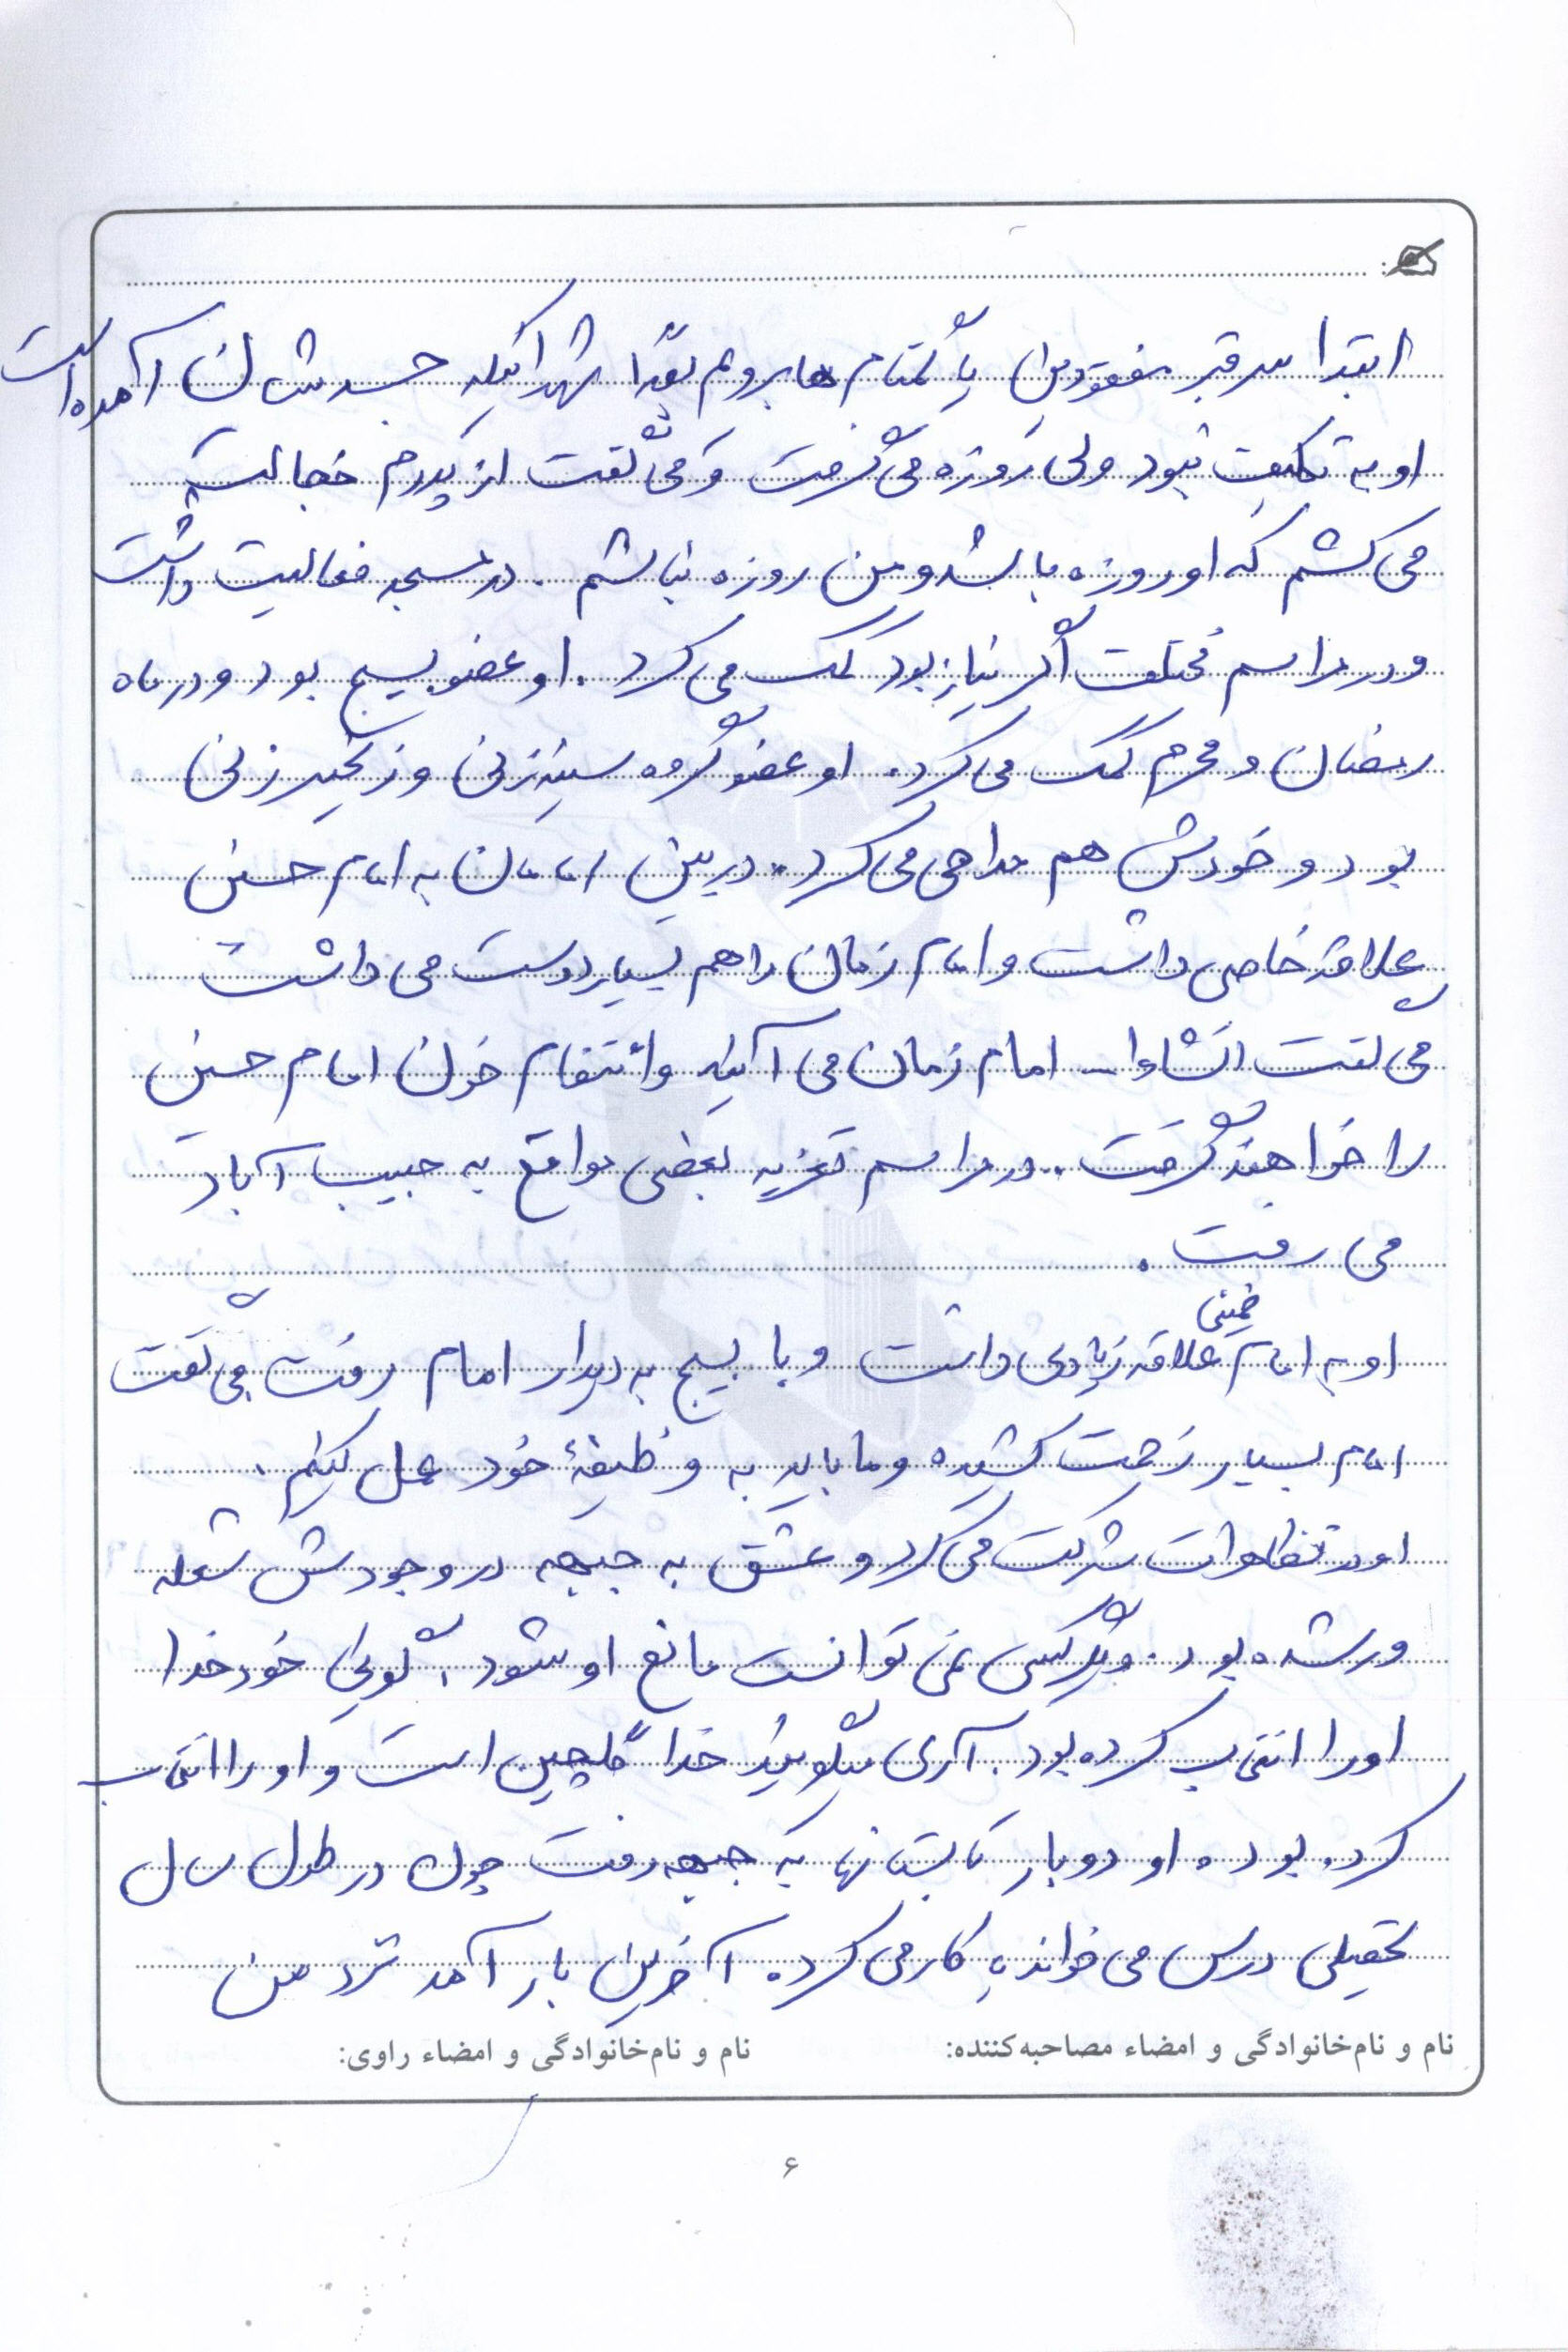 ابتدا سر قبر مفقودین یا گمنام ها بروم بعداً شهدائیکه جسدشان آمده است
او به تکلیف نبود ولی روزه می گرفت و می گفت از پدرم خجالت
می کشم که او روزه باشد و من روزه نباشم . در مسجد فعالیت داشت
و در مراسم مختلف اگر نیاز بود کمک می کرد . او عضو بسیج بود و در ماه
رمضان و محرم کمک می کرد . او عضو گروه سینه زنی و زنجیر زنی
بود و خودش هم مداحی می کرد . در بین امامان به امام حسین
علاقه خاصی داشت و امام زمان را هم بسیار دوست می داشت
می گفت انشاا... امام زمان می آیند و انتقام خون امام حسین
را خواهند گرفت . در مراسم تعزیه بعضی مواقع به حبیب آباد
می رفت .
او به امام خمینی علاقه زیادی داشت و با بسیج به دیدار امام رفت می گفت
امام بسیار زحمت کشیده و ما باید به وظیفۀ خود عمل کنیم .
او در تظاهرات شرکت می کرد و عشق به جبهه در وجودش شعله
ور شده بود . دیگر کسی نمی توانست مانع او شود ، گویی خود خدا
او را انتخاب کرده بود . آری میگویند خدا گلچین است و او را انتخاب
کرده بود . او دوبار تابستانها به جبهه رفت چون در طول سال
تحصیلی درس می خواند کار می کرد . آخرین بار آمد نزد من
نام و نام‌خانوادگی و امضاء مصاحبه‌کننده: نام و نام‌خانوادگی و امضاء راوی:
۶